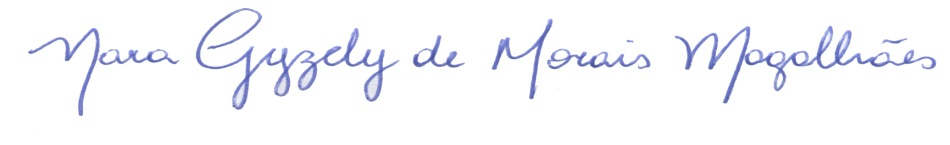 Nara Gyzely de Morais Magalhães